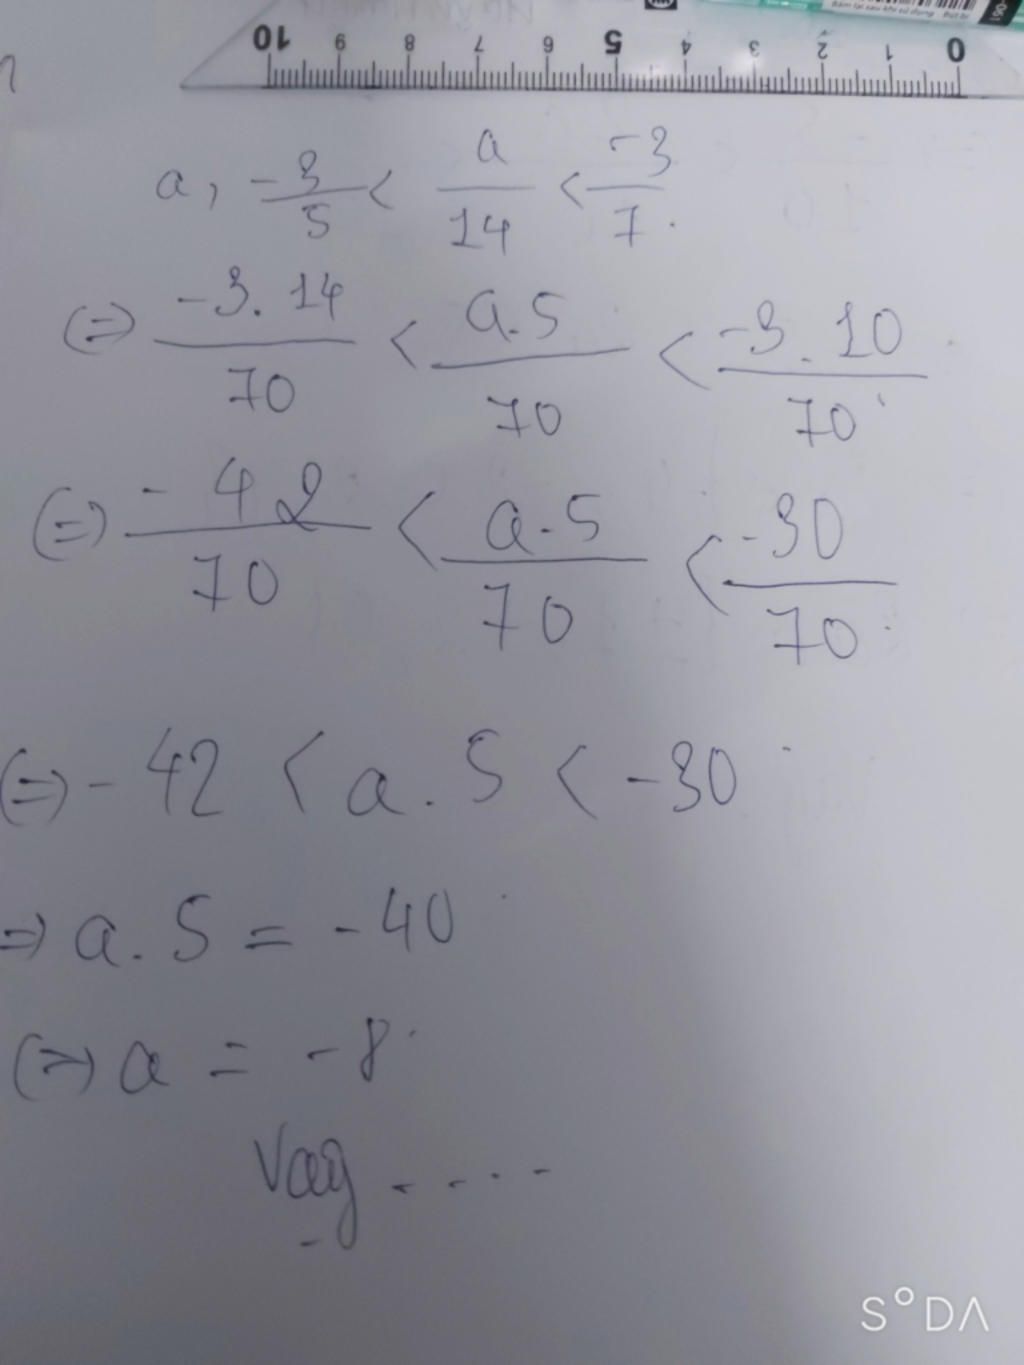 10 9 8 7 6 5 4 3 2 1 0
a, -3/5 < a/14 < -3/7.
(=) -3.14/70 < a.5/70 < -3.10/70
(=) -42/70 < a.5/70 < -30/70
(=) -42 < a.5 < -30
=) a.5 = -40
(=) a = -8
Vậy ....
S°DA